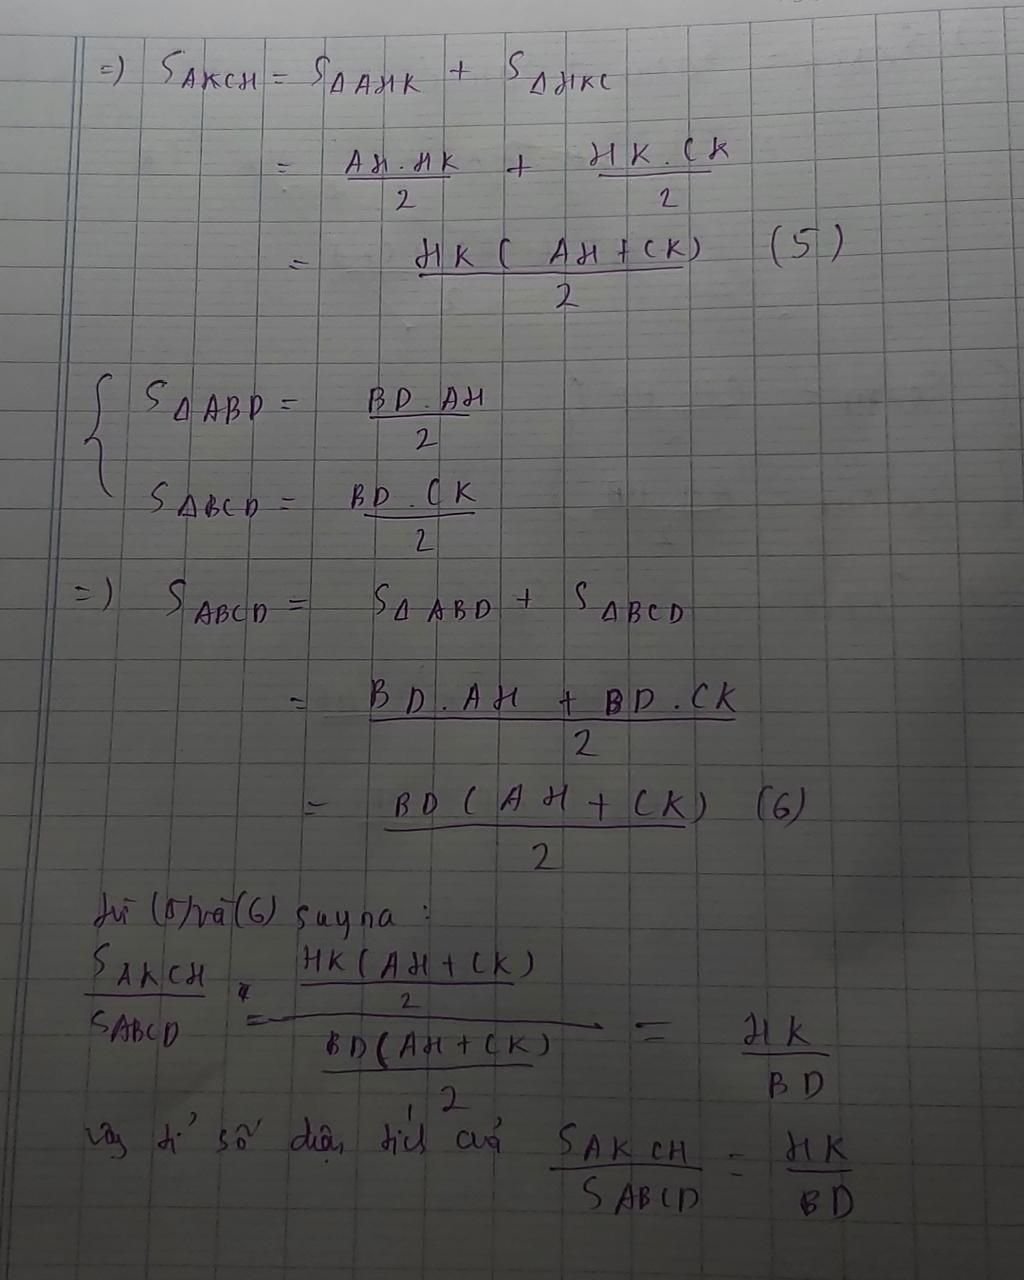 =) S AKCH = S ΔAHK + S ΔHKC
= AH.HK/2 + HK.CK/2
= HK(AH+CK)/2 (5)
{ S ΔABD = BD.AH/2
S ΔBCD = BD.CK/2
=) S ABCD = S ΔABD + S ΔBCD
= BD.AH + BD.CK/2
= BD(AH+CK)/2 (6)
từ (5) và (6) suy ra :
S AKCH/S ABCD = HK(AH+CK)/2 / BD(AH+CK)/2 = HK/BD
vậy tỉ số diện tích của S AKCH/S ABCD = HK/BD